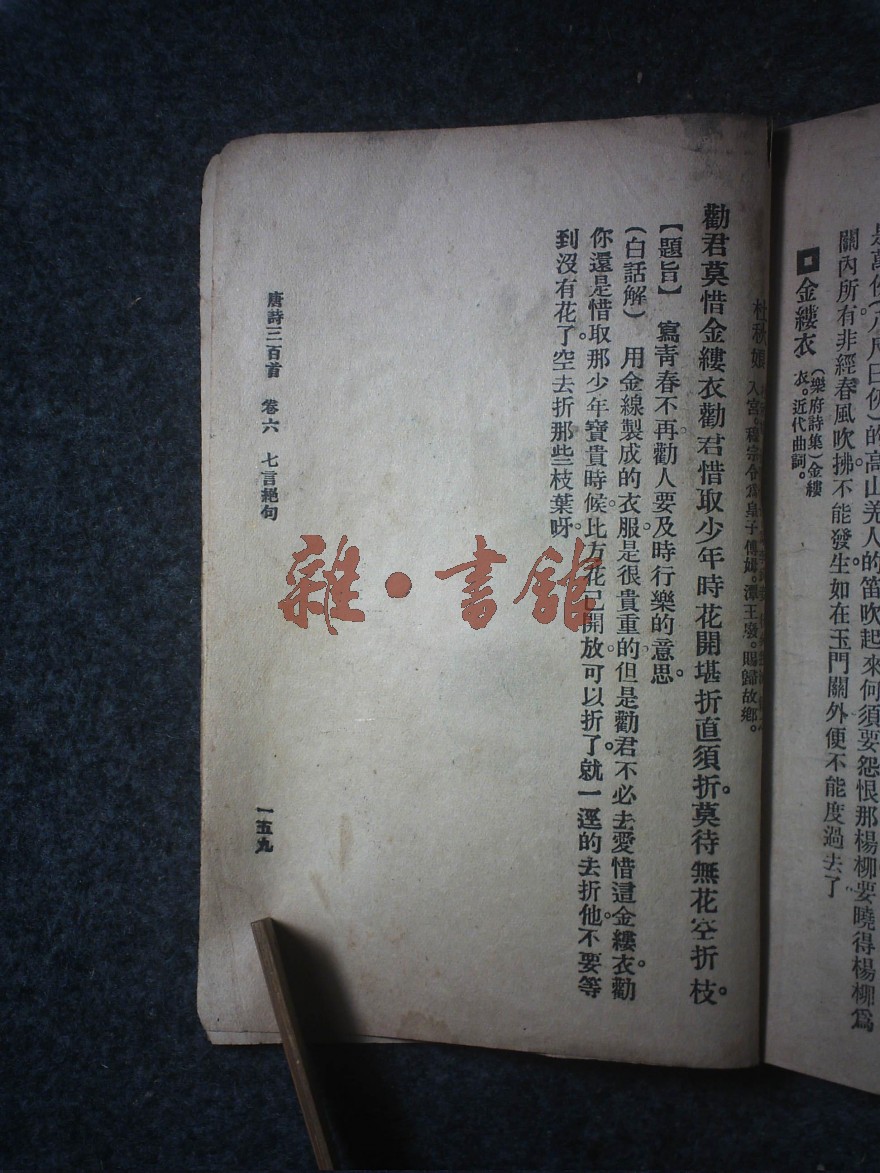 是萬仞(八尺曰仞)的高山羌人的笛吹起來何須要怨恨那楊柳要曉得楊柳爲
關內所有非經春風吹拂不能發生如在玉門關外便不能度過去了
金縷衣
(樂府詩集)金縷
衣。近代曲詞。
杜秋娘
入宮。穆宗令爲皇子傅姆。漳王廢。賜歸故鄉。
勸君莫惜金縷衣勸君惜取少年時花開堪折直須折。莫待無花空折枝。
【題旨】 寫青春不再勸人要及時行樂的意思。
(白話解) 用金線製成的衣服。是很貴重的。但是勸君不必去愛惜這金縷衣。勸
你還是惜取那少年寶貴時候。比方花已開放。可以折了。就一逕的去折他。不要等
到沒有花了。空去折那些枝葉呀。
唐詩三百首 卷六 七言絕句
一五九
雜·書館